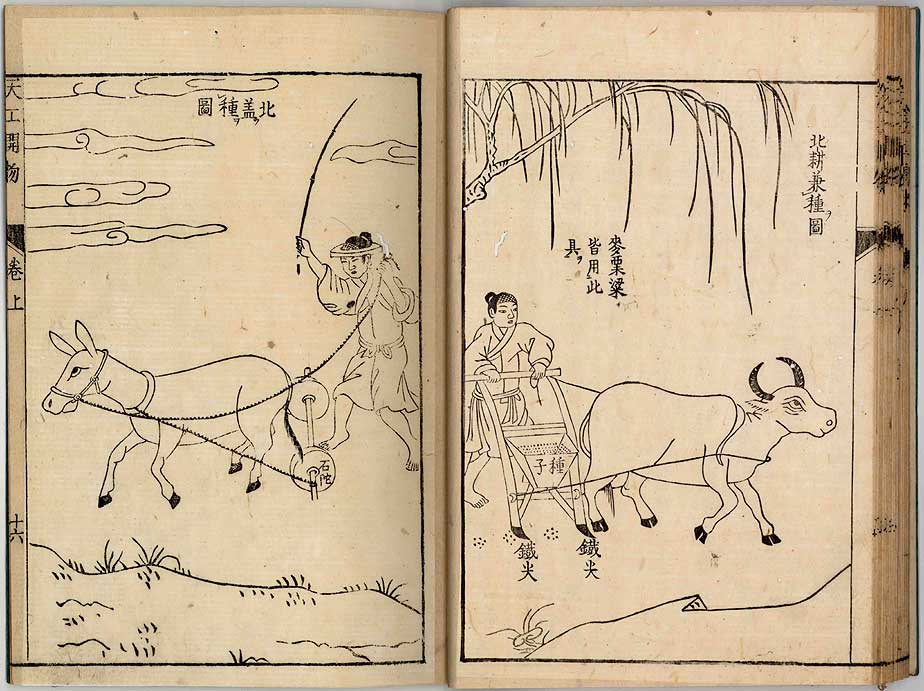 北耕兼種圖
麥粟粱
皆用此
具
種子
鐵尖
鐵尖
北盖種圖
石陀
天工開物
卷上
十六